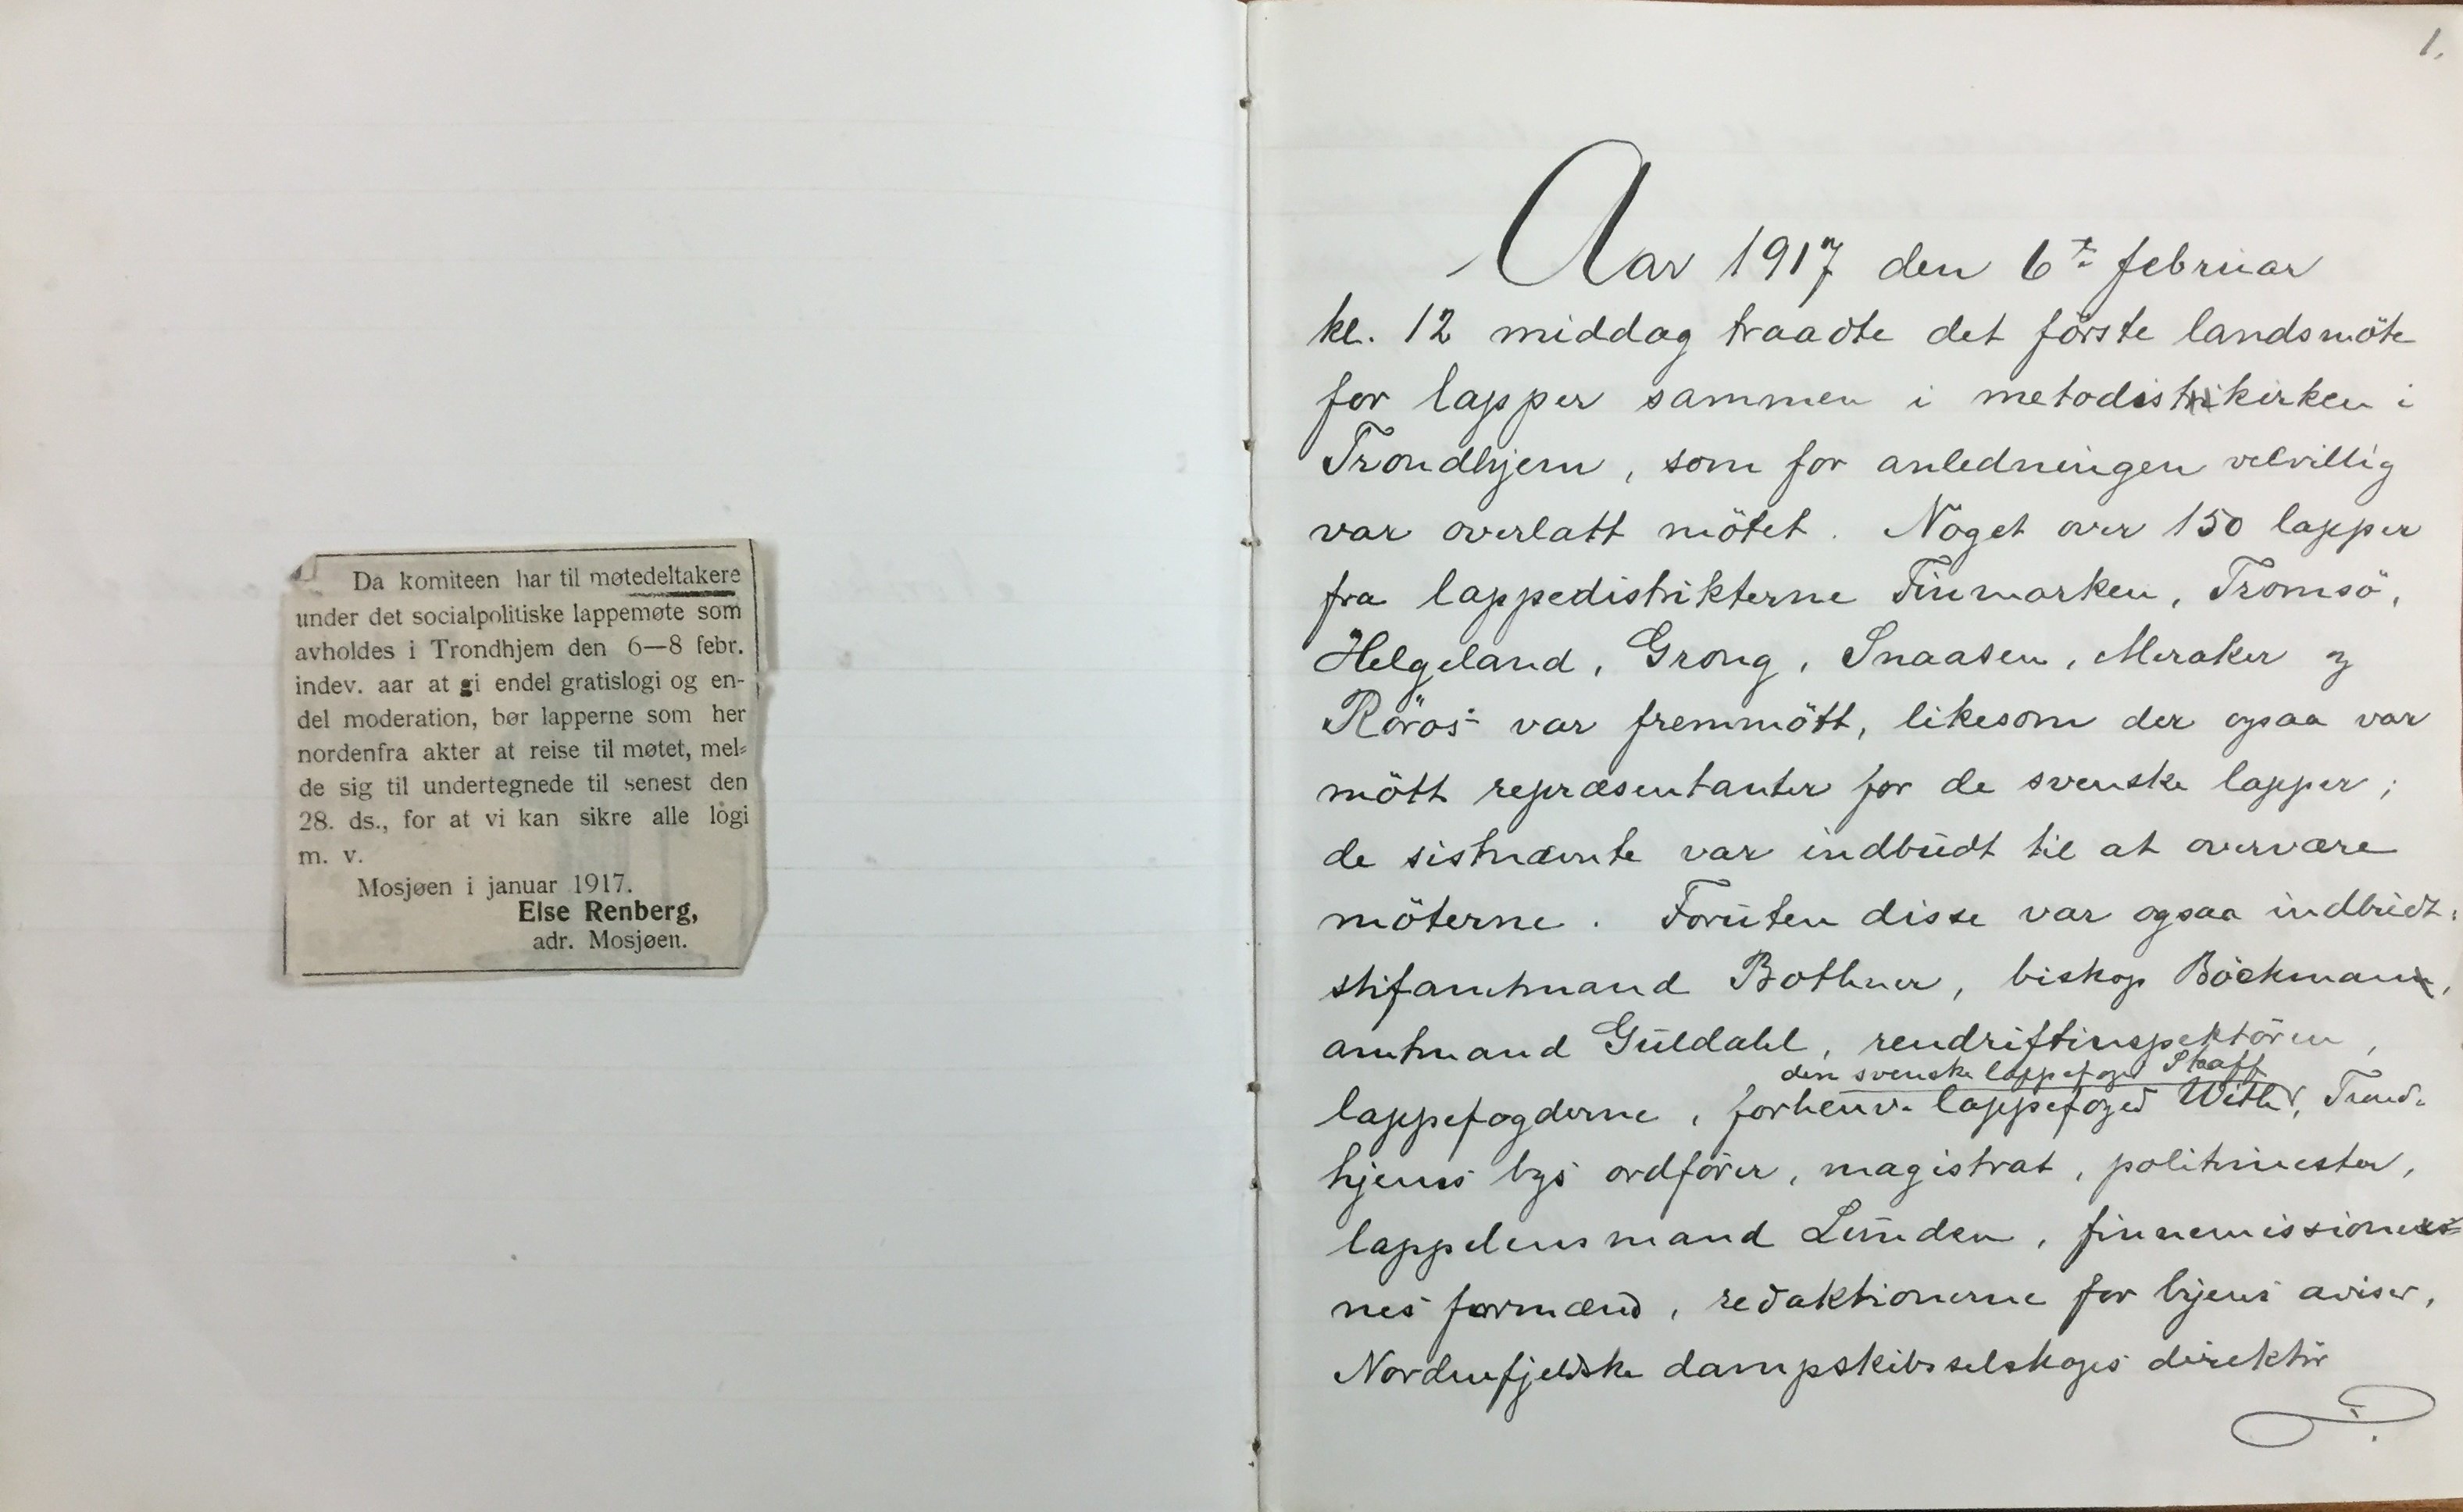 Da komiteen har til møtedeltakere
under det socialpolitiske lappemøte som
avholdes i Trondhjem den 6—8 febr.
indev. aar at gi endel gratislogi og en-
del moderation, bør lapperne som her
nordenfra akter at reise til møtet, mel-
de sig til undertegnede til senest den
28. ds., for at vi kan sikre alle logi
m. v.
Mosjøen i januar 1917.
Else Renberg,
adr. Mosjøen.
1.
Aar 1917 den 6te februar
kl. 12 middag traadte det förste landsmöte
for lapper sammen i metodistkirken i
Trondhjem, som for anledningen velvillig
var overlatt mötet. Noget over 150 lapper
fra lappedistrikterne Finmarken, Tromsö,
Helgeland, Grong, Snaasen, Meraker og
Röros var fremmött, likesom der ogsaa var
mött repræsentanter for de svenske lapper;
de sistnævnte var indbudt til at overvære
möterne. Foruten disse var ogsaa indbudt:
stifamtmand Bothner, biskop Böckman,
amtmand Guldahl, rendriftinspektören,
den svenske lappefoged Staaff
lappefogderne, forhenv. lappefoged Wether, Trond-
hjems bys ordförer, magistrat, politimester,
lappelensmand Lunden, finnemissioner-
nes formænd, redaktionerne for byens aviser,
Nordenfjeldske dampskibsselskaps direktör